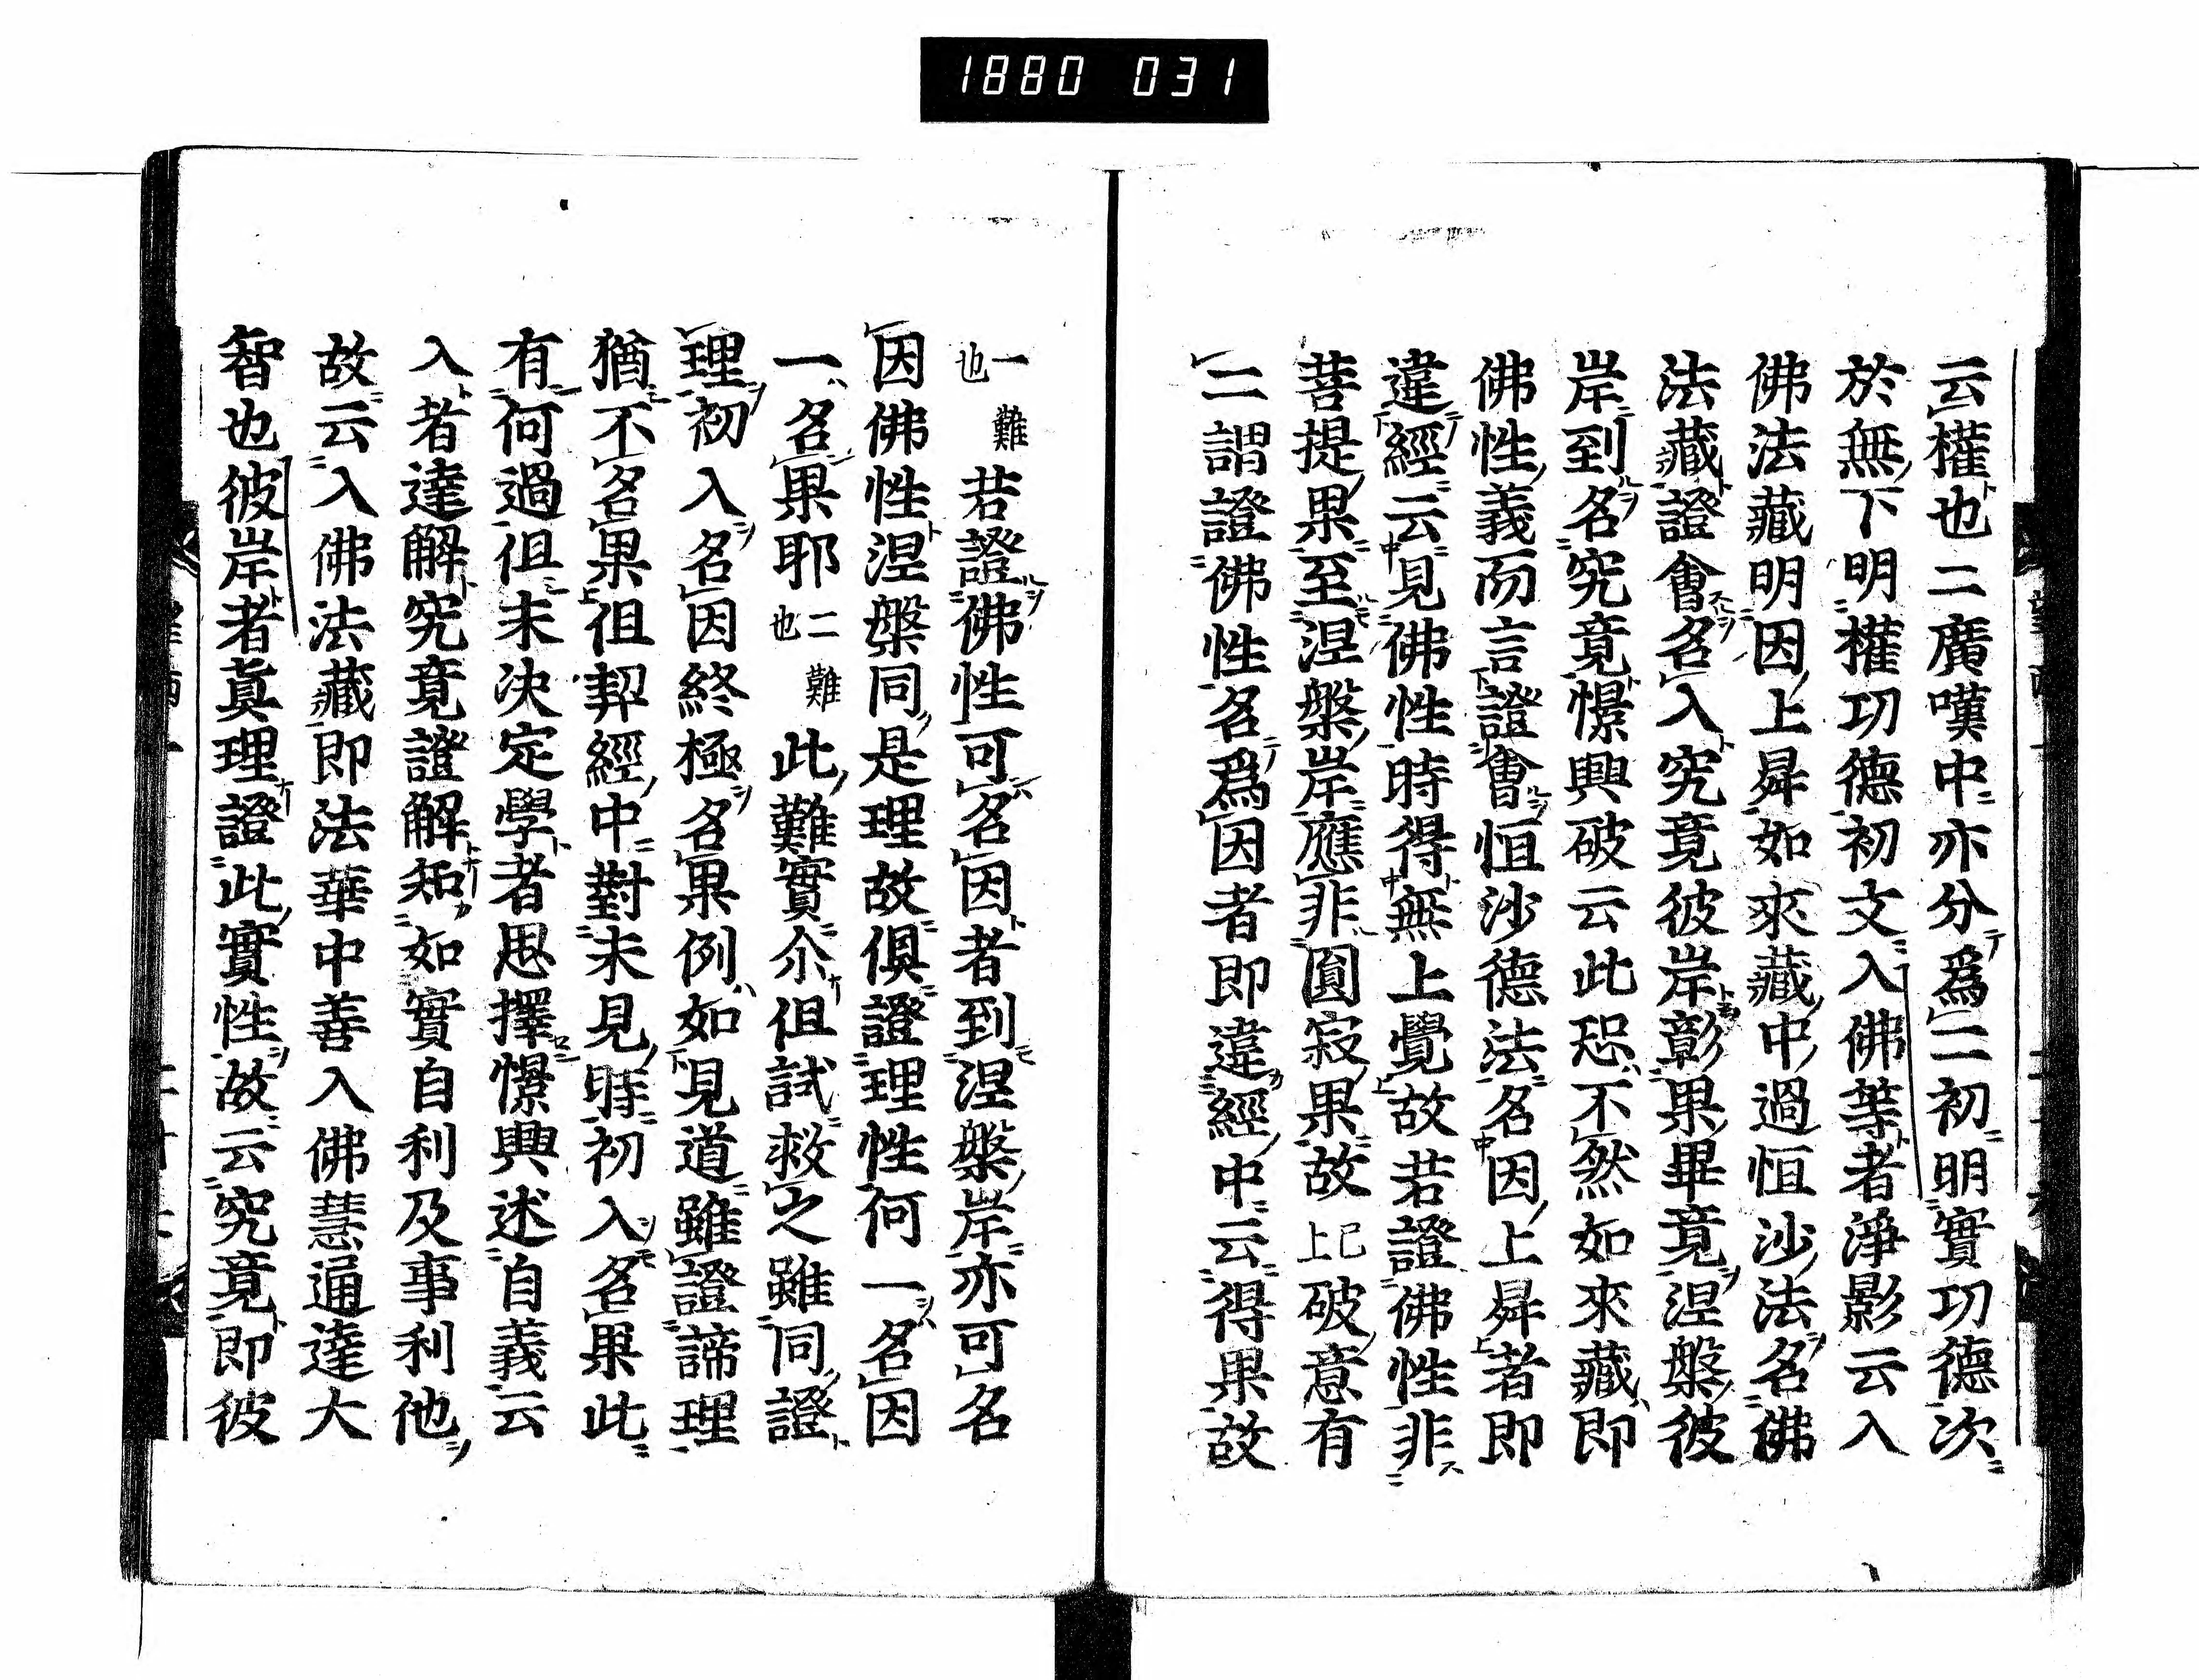 1880 031
云權也二廣嘆中亦分爲二初明實功德次
於無下明權功德初文入佛等者淨影云入
佛法藏明因上昇如來藏中過恒沙法名佛
法藏證會名入究竟彼岸彰果畢竟涅槃彼
岸到名究竟憬興破云此恐不然如來藏即
佛性義而言證會恒沙德法名因上昇者即
違經云見佛性時得無上覺故若證佛性非
菩提果至涅槃岸應非圓寂果故已上破意有
二謂證佛性名爲因者即違經中云得果故
一難也若證佛性可名因者到涅槃岸亦可名
因佛性涅槃同是理故俱證理性何一名因
一名果耶二難也此難實尒但試救之雖同證
理初入名因終極名果例如見道雖證諦理
猶不名果但契經中對未見時初入名果此
有何過但未決定學者思擇憬興述自義云
入者達解究竟證解知如實自利及事利他
故云入佛法藏即法華中善入佛慧通達大
智也彼岸者眞理證此實性故云究竟即彼